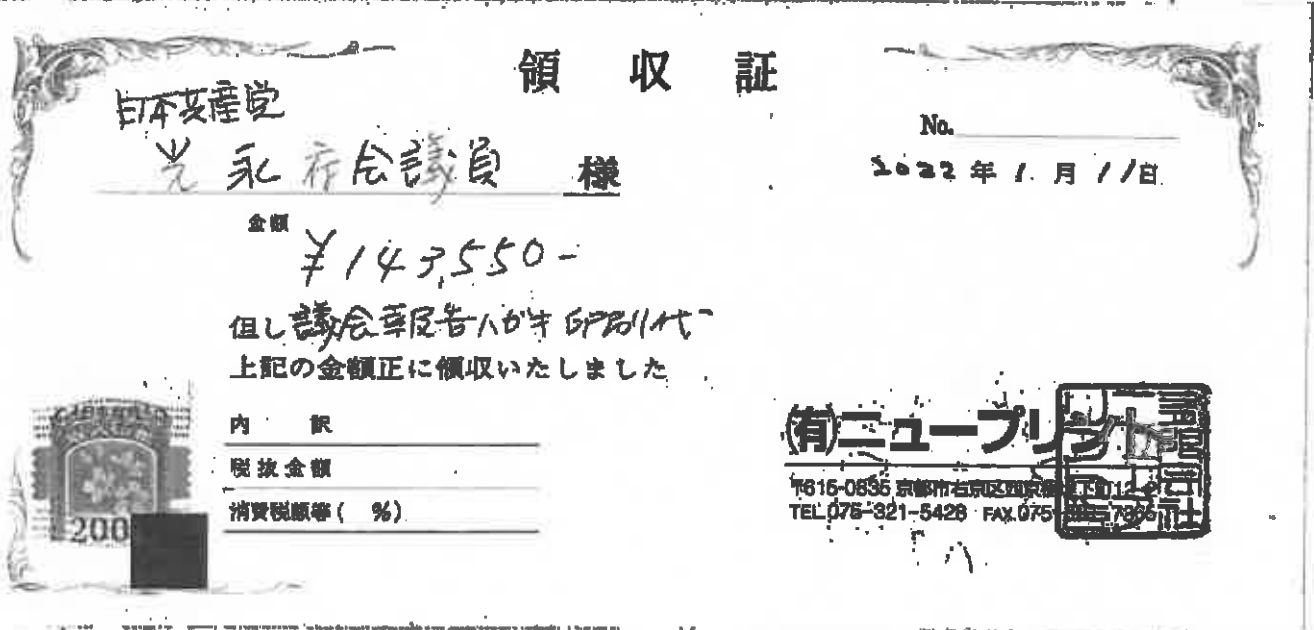 領収証
日本共産党
光永府会議員 様
No.
2022年1月11日
金額
¥143,550-
但し 議会報告ハガキ印刷代
上記の金額正に領収いたしました
内訳
税抜金額
消費税額等( %)
200
(有)ニュープリント
〒615-0835 京都市右京区西京極
TEL.075-321-5428 FAX.075-